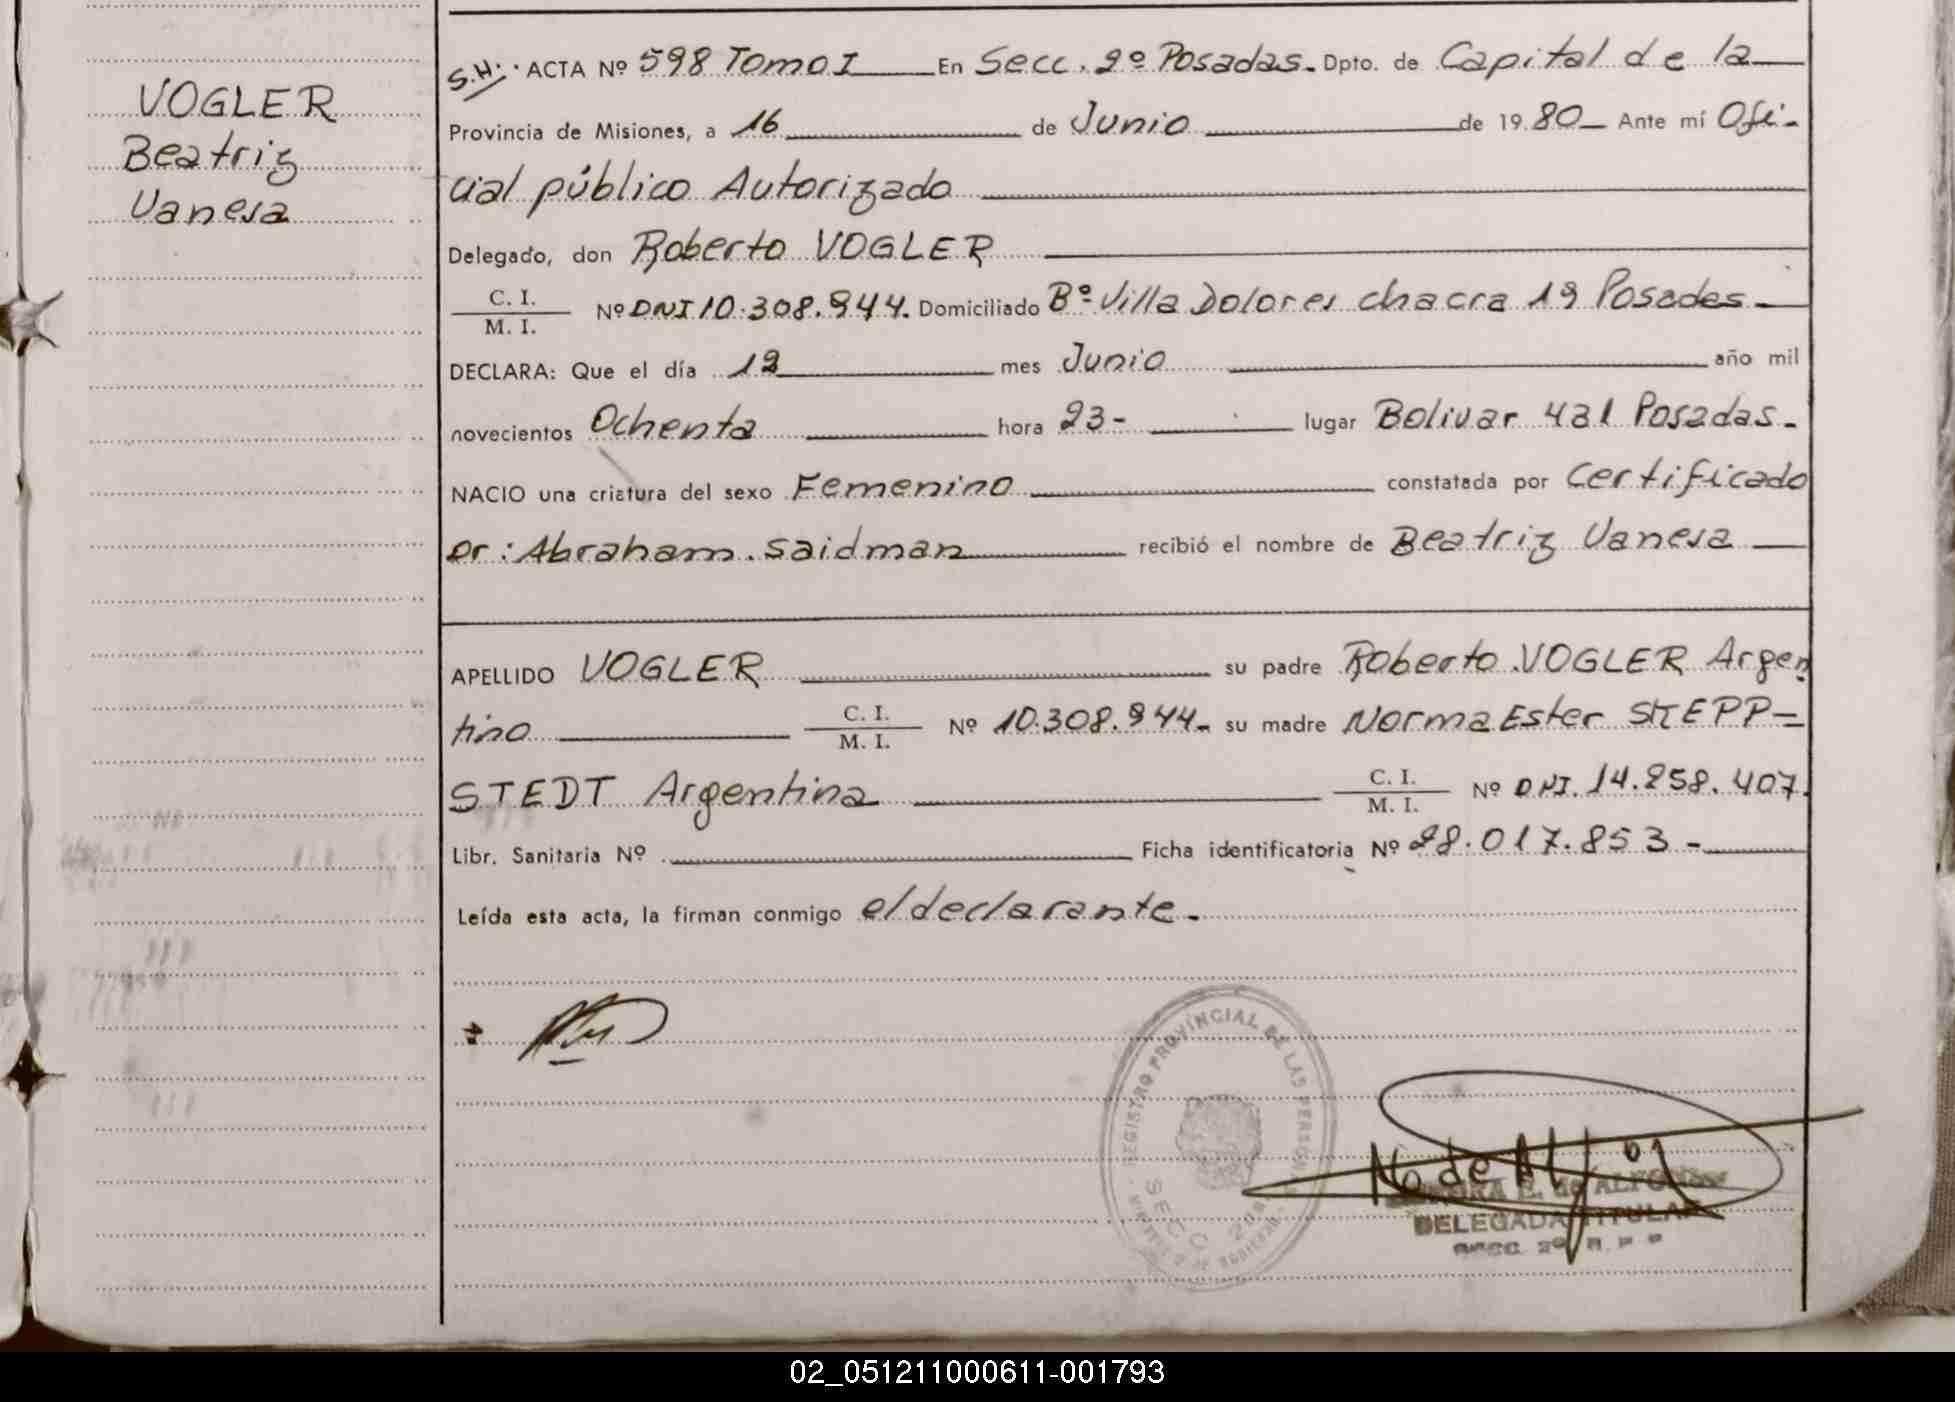 VOGLER
Beatriz
Vanesa
S.H. ACTA Nº 598 Tomo I En Secc. 2º Posadas. Dpto. de Capital de la
Provincia de Misiones, a 16 de Junio de 1980 Ante mí Ofi-
cial público Autorizado
Delegado, don Roberto VOGLER
C. I.
M. I.
Nº DNI 10.308.944. Domiciliado Bº Villa Dolores chacra 19 Posadas
DECLARA: Que el día 12 mes Junio año mil
novecientos Ochenta hora 23- lugar Bolivar 421 Posadas.
NACIO una criatura del sexo Femenino constatada por Certificado
Dr: Abraham. Saidman recibió el nombre de Beatriz Vanesa
APELLIDO VOGLER su padre Roberto VOGLER Argen
tino C. I. M. I. Nº 10.308.944- su madre Norma Ester STEPP=
STEDT Argentina C. I. M. I. Nº DNI. 14.258.407.
Libr. Sanitaria Nº Ficha identificatoria Nº 28.017.853-
Leída esta acta, la firman conmigo el declarante.
REGISTRO PROVINCIAL DE LAS PERSONAS
SECC 2da
E. de ALFONSO
DELEGADA TITULAR
SECC. 2º R. P. P
02_051211000611-001793